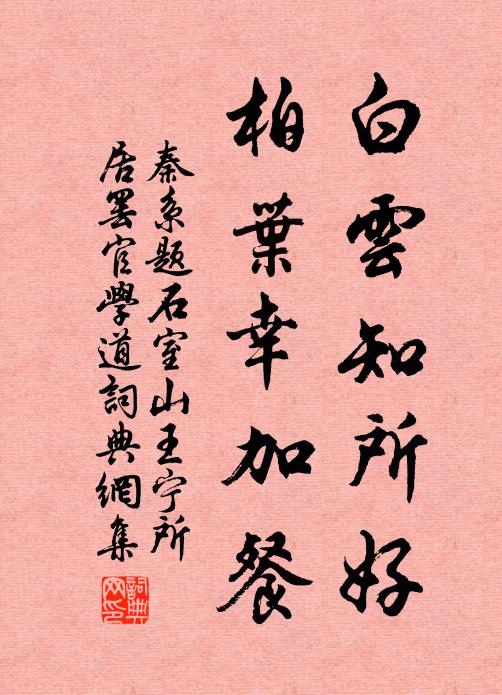 白雲知所好
柏葉幸加餐
秦系題石室山王宁所
居罢官學道詞典網集
詞典
网印